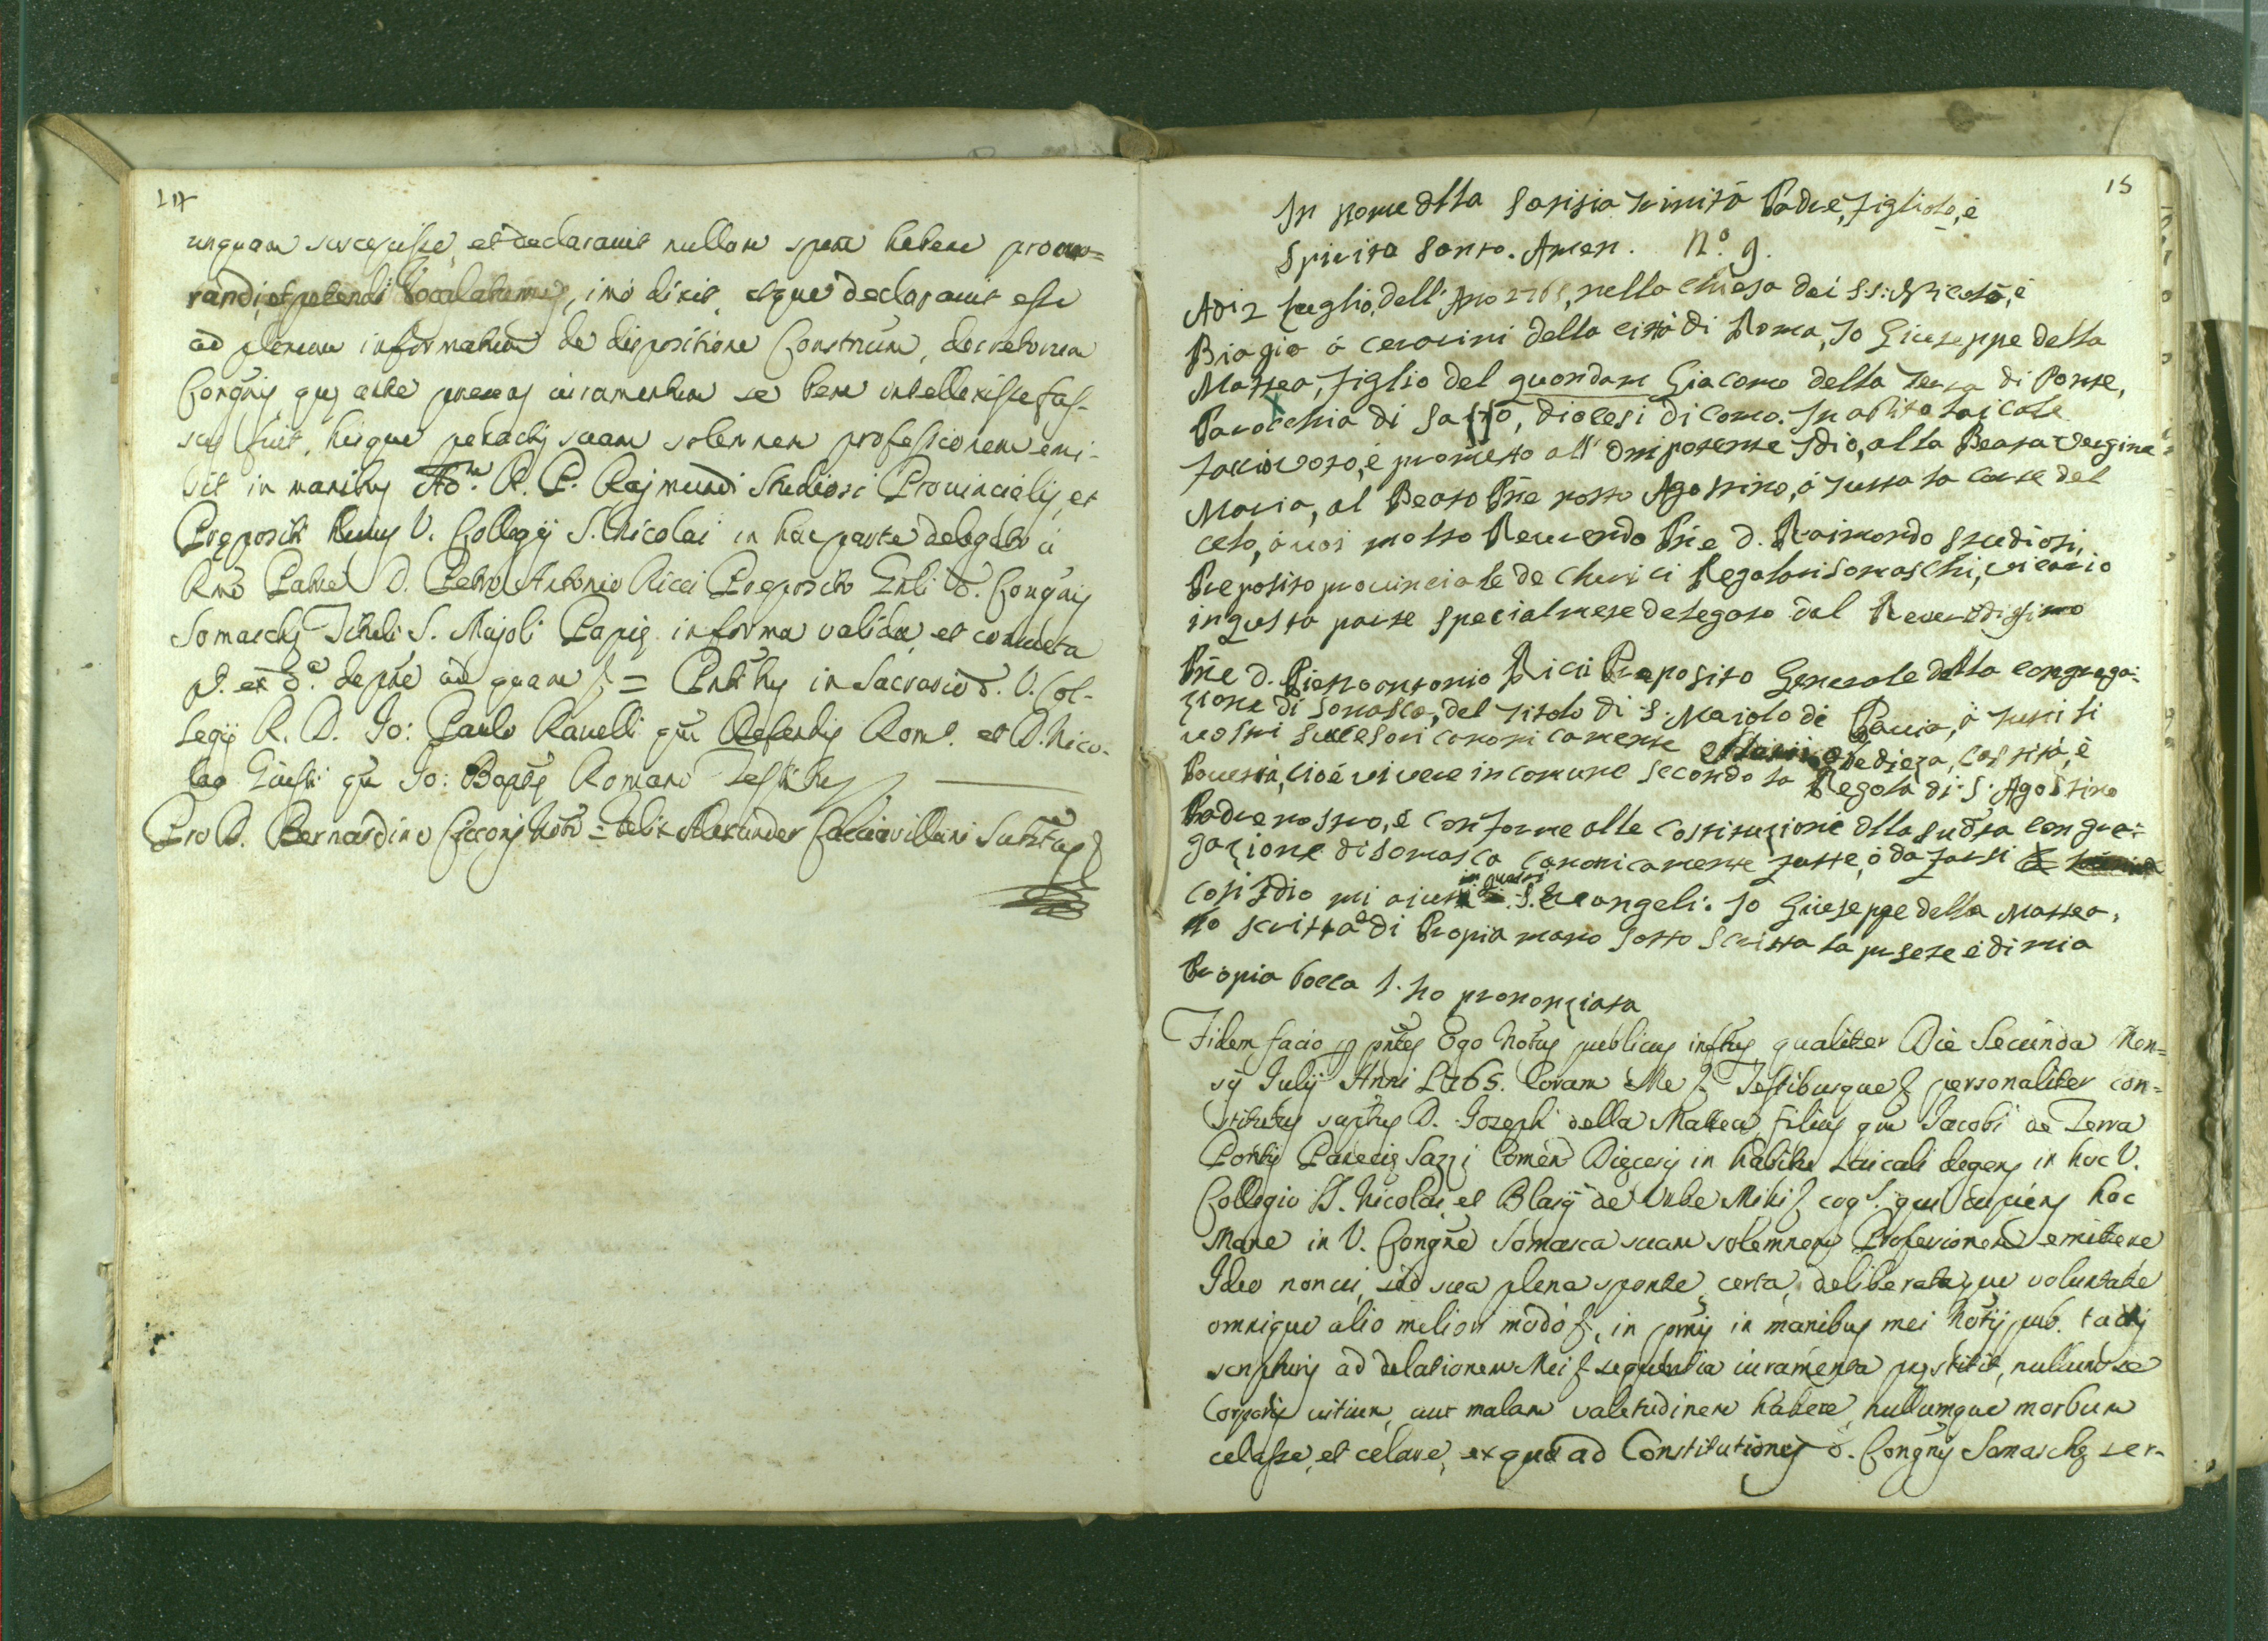 14
unquam suscepisse, et declaravit nullam spem habere procu=
randi, et petendi Vocalatum, imò dixit, atque declaravit esse
ad plenum informatum de dispositione Constnum, decretorum
Congñis, que ante juramentum se bene intellexisse fas-
sus fuit, hisque peractis suam solemnem professionem emi-
sit in manibus Adm. R. P. Rajmundi Studiosi Provincialis, et
Prepositi hujus V. Collegij S. Nicolai in hac parte delegato à
Rmo Patre D. Petro Antonio Ricci Preposito Gnli d. Congñis
Somasche Tituli S. Majoli Papie in forma valida, et consueta
= Pntibus in Sacrario d. V. Col-
legij R. D. Jo: Paulo Ravelli qm Defendis Rom. et D. Nico-
lao qm Jo: Bapte Romano Testibus
Pro D. Bernardino Cicconi Noto = Felix Alexander Cacciavillani Substus
15
In nome dlla Santisia Trinità Padre, Figliolo, è
Spirito Santo. Amen. N.º 9.
Adi 2 Luglio, dell' Ano 1765, nella chiesa dei S.S: Nicolò, è
Biagio à cesarini della città di Roma, Io Giuseppe della
Mattea, Figlio del quondam Giacomo della Terra di Ponte,
Parocchia di Sazzo, diocesi di Como. In abito laicale
faccio voto, è prometto all' Onipotente Idio, alla Beata Vergine
Maria, al Beato Pre nosto Agostino, à tutta la corte del
celo, à voi molto Reverendo Pre D. Raimondo Studiosi,
Preposito provinciale de Cherici Regolari Somaschi, vicario
in qusta parte specialmete delegato dal Reveredissimo
Pre D. Pietro antonio Ricii Preposito Generale della congrega:
zione di Somasca, del titolo di S. Maiolo di Pavia, à tutti li
vostri succesori canonicamente obedieza, castità, è
Povertà, cioè vivere in comune secondo la Regola di S. Agostino
Padre nostro, è conforme alle costituzioni dlla sudta congre:
gazione di Somasca canonicamente fatte, ò da farsi
cosi Idio mi aiuti in questi S. Evangeli. Io Giuseppe della Mattea,
ho scritta di Propia mano sotto scritta la presete è di mia
Propia bocca l' ho prononziata
Fidem facio pntes Ego Notus publicus inftus qualiter Die Secunda Men=
sis Julij Anni 1765. Coram Me Testibusque personaliter con=
stitutus suptus D. Joseph della Mattea filius qm Jacobi de Terra
Pontis Parecie Sazzi Comen Diecesis in habitu Laicali degens in hoc V.
Collegio SS. Nicolai, et Blasij de Urbe Mihi cog. qui cupiens hoc
Mane in V. Congne Somasca suam solemnem Professionem emittere
Ideo non vi, sed sua plena sponte, certa, deliberataque voluntate
omnique alio meliori modo, in pmis in manibus mei Notij pub. tactis
scripturis ad delationem Mei sequentia iuramenta prestitit, nullum se
Corporis vitium, aut malam valetudinem habere, nullumque morbum
celasse, et celare, ex quo ad Constitutiones d. Congnis Somasche ser-